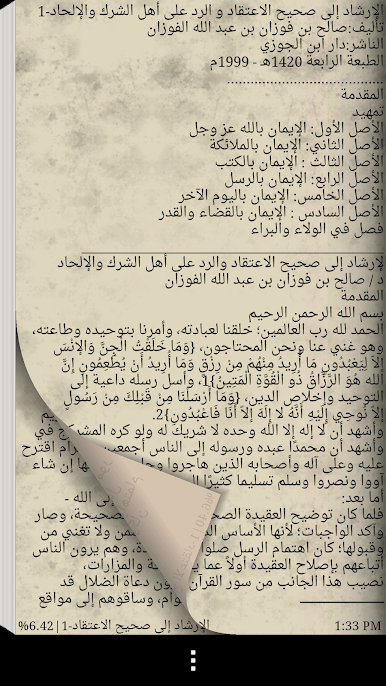 الإرشاد إلى صحيح الاعتقاد و الرد على أهل الشرك والإلحاد-1
تأليف:صالح بن فوزان بن عبد الله الفوزان
الناشر:دار ابن الجوزي
الطبعة الرابعة 1420هـ - 1999م
......................................
المقدمة
تمهيد
الأصل الأول: الإيمان بالله عز وجل
الأصل الثاني: الإيمان بالملائكة
الأصل الثالث : الإيمان بالكتب
الأصل الرابع: الإيمان بالرسل
الأصل الخامس: الإيمان باليوم الآخر
الأصل السادس : الإيمان بالقضاء والقدر
فصل في الولاء والبراء
لإرشاد إلى صحيح الاعتقاد والرد على أهل الشرك والإلحاد
د / صالح بن فوزان بن عبد الله الفوزان
المقدمة
بسم الله الرحمن الرحيم
الحمد لله رب العالمين؛ خلقنا لعبادته، وأمرنا بتوحيده وطاعته،
وهو غني عنا ونحن المحتاجون، {وَمَا خَلَقْتُ الْجِنَّ وَالإِنسَ
إِلاَّ لِيَعْبُدُونِ مَا أُرِيدُ مِنْهُمْ مِنْ رِزْقٍ وَمَا أُرِيدُ أَنْ يُطْعِمُونِ إِنَّ
الله هُوَ الرَّزَّاقُ ذُو الْقُوَّةِ الْمَتِينُ}1، وأسل رسله داعية إلى
التوحيد وإخلاص الدين، {وَمَا أَرْسَلْنَا مِنْ قَبْلِكَ مِنْ رَسُولٍ
إِلاَّ نُوحِي إِلَيْهِ أَنَّهُ لا إِلَهَ إِلاَّ أَنَا فَاعْبُدُونِ}2.
وأشهد أن لا إله إلا الله وحده لا شريك له ولو كره المشركون في
وأشهد أن محمدًا عبده ورسوله إلى الناس أجمعين اقترح
عليه وعلى آله وأصحابه الذين هاجروا إن شاء
آووا ونصروا وسلم تسليما كثيرًا
أما بعد: الله -
فلما كان توضيح العقيدة الصحيحة، وصار
وآكد الواجبات؛ لأنها الأساس ولا تغني من
وقبولها؛ كان اهتمام الرسل وهم يرون الناس
أتباعهم بإصلاح العقيدة أولاً والمزارات،
نصيب هذا الجانب من سور القرآن دعاة الضلال قد
وساقوهم إلى مواقع
%6.42 | الإرشاد إلى صحيح الاعتقاد-1
1:33 PM